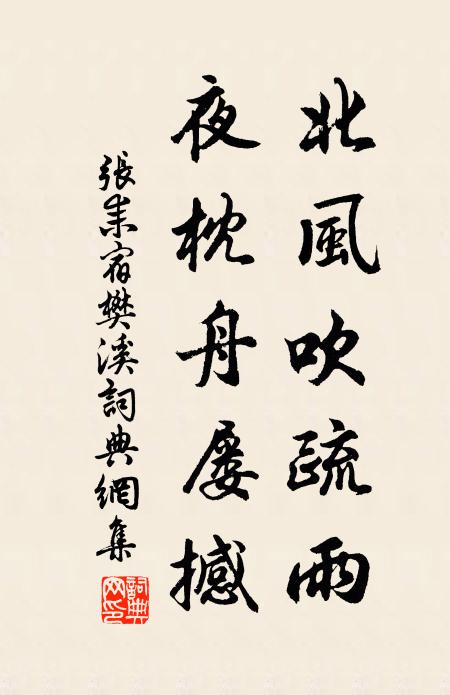 北風吹疏雨
夜枕舟屡撼
張耒宿樊溪詞典網集
詞典网印